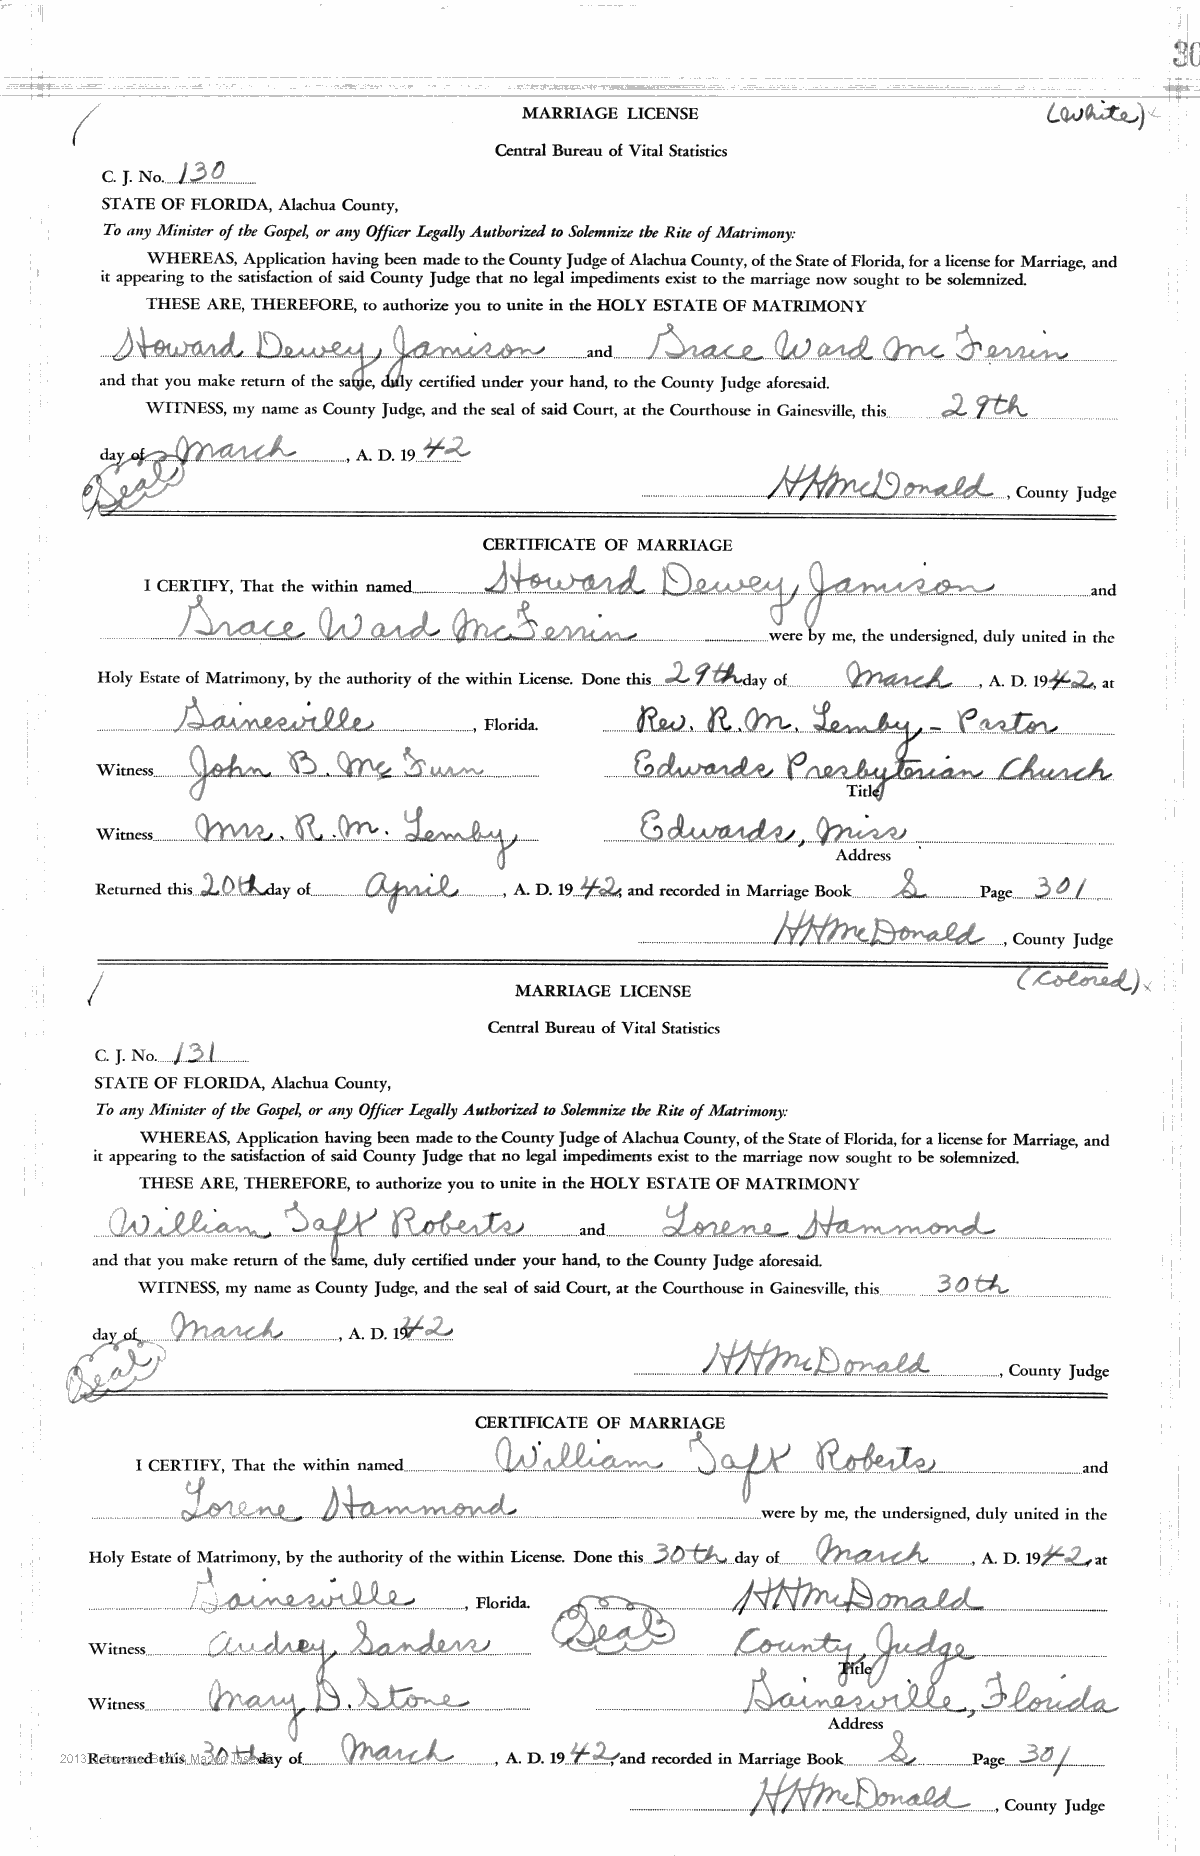 30
MARRIAGE LICENSE (White)
Central Bureau of Vital Statistics
C. J. No. 130
STATE OF FLORIDA, Alachua County,
To any Minister of the Gospel, or any Officer Legally Authorized to Solemnize the Rite of Matrimony:
WHEREAS, Application having been made to the County Judge of Alachua County, of the State of Florida, for a license for Marriage, and
it appearing to the satisfaction of said County Judge that no legal impediments exist to the marriage now sought to be solemnized.
THESE ARE, THEREFORE, to authorize you to unite in the HOLY ESTATE OF MATRIMONY
Howard Dewey Jamison and Grace Ward McFerrin
and that you make return of the same, duly certified under your hand, to the County Judge aforesaid.
WITNESS, my name as County Judge, and the seal of said Court, at the Courthouse in Gainesville, this 29th
day of March, A. D. 1942
(Seal) HHMcDonald, County Judge
CERTIFICATE OF MARRIAGE
I CERTIFY, That the within named Howard Dewey Jamison and
Grace Ward McFerrin were by me, the undersigned, duly united in the
Holy Estate of Matrimony, by the authority of the within License. Done this 29th day of March, A. D. 1942, at
Gainesville, Florida. Rev. R. M. Lemby - Pastor
Witness John B. Edwards Presbyterian Church
Title
Witness Mrs. R. M. Lemby Edwards, Miss
Address
Returned this 20th day of April, A. D. 1942, and recorded in Marriage Book S Page 301
HHMcDonald, County Judge
(Colored)
MARRIAGE LICENSE
Central Bureau of Vital Statistics
C. J. No. 131
STATE OF FLORIDA, Alachua County,
To any Minister of the Gospel, or any Officer Legally Authorized to Solemnize the Rite of Matrimony:
WHEREAS, Application having been made to the County Judge of Alachua County, of the State of Florida, for a license for Marriage, and
it appearing to the satisfaction of said County Judge that no legal impediments exist to the marriage now sought to be solemnized.
THESE ARE, THEREFORE, to authorize you to unite in the HOLY ESTATE OF MATRIMONY
William Taft Roberts and Lorene Hammond
and that you make return of the same, duly certified under your hand, to the County Judge aforesaid.
WITNESS, my name as County Judge, and the seal of said Court, at the Courthouse in Gainesville, this 30th
day of March, A. D. 1942
(Seal) HHMcDonald, County Judge
CERTIFICATE OF MARRIAGE
I CERTIFY, That the within named William Taft Roberts and
Lorene Hammond were by me, the undersigned, duly united in the
Holy Estate of Matrimony, by the authority of the within License. Done this 30th day of March, A. D. 1942, at
Gainesville, Florida. (Seal) HHMcDonald
Witness Audrey Sanders County Judge
Title
Witness Mary D. Stone Gainesville, Florida
Address
Returned this 30th day of March, A. D. 1942, and recorded in Marriage Book S Page 301
HHMcDonald, County Judge